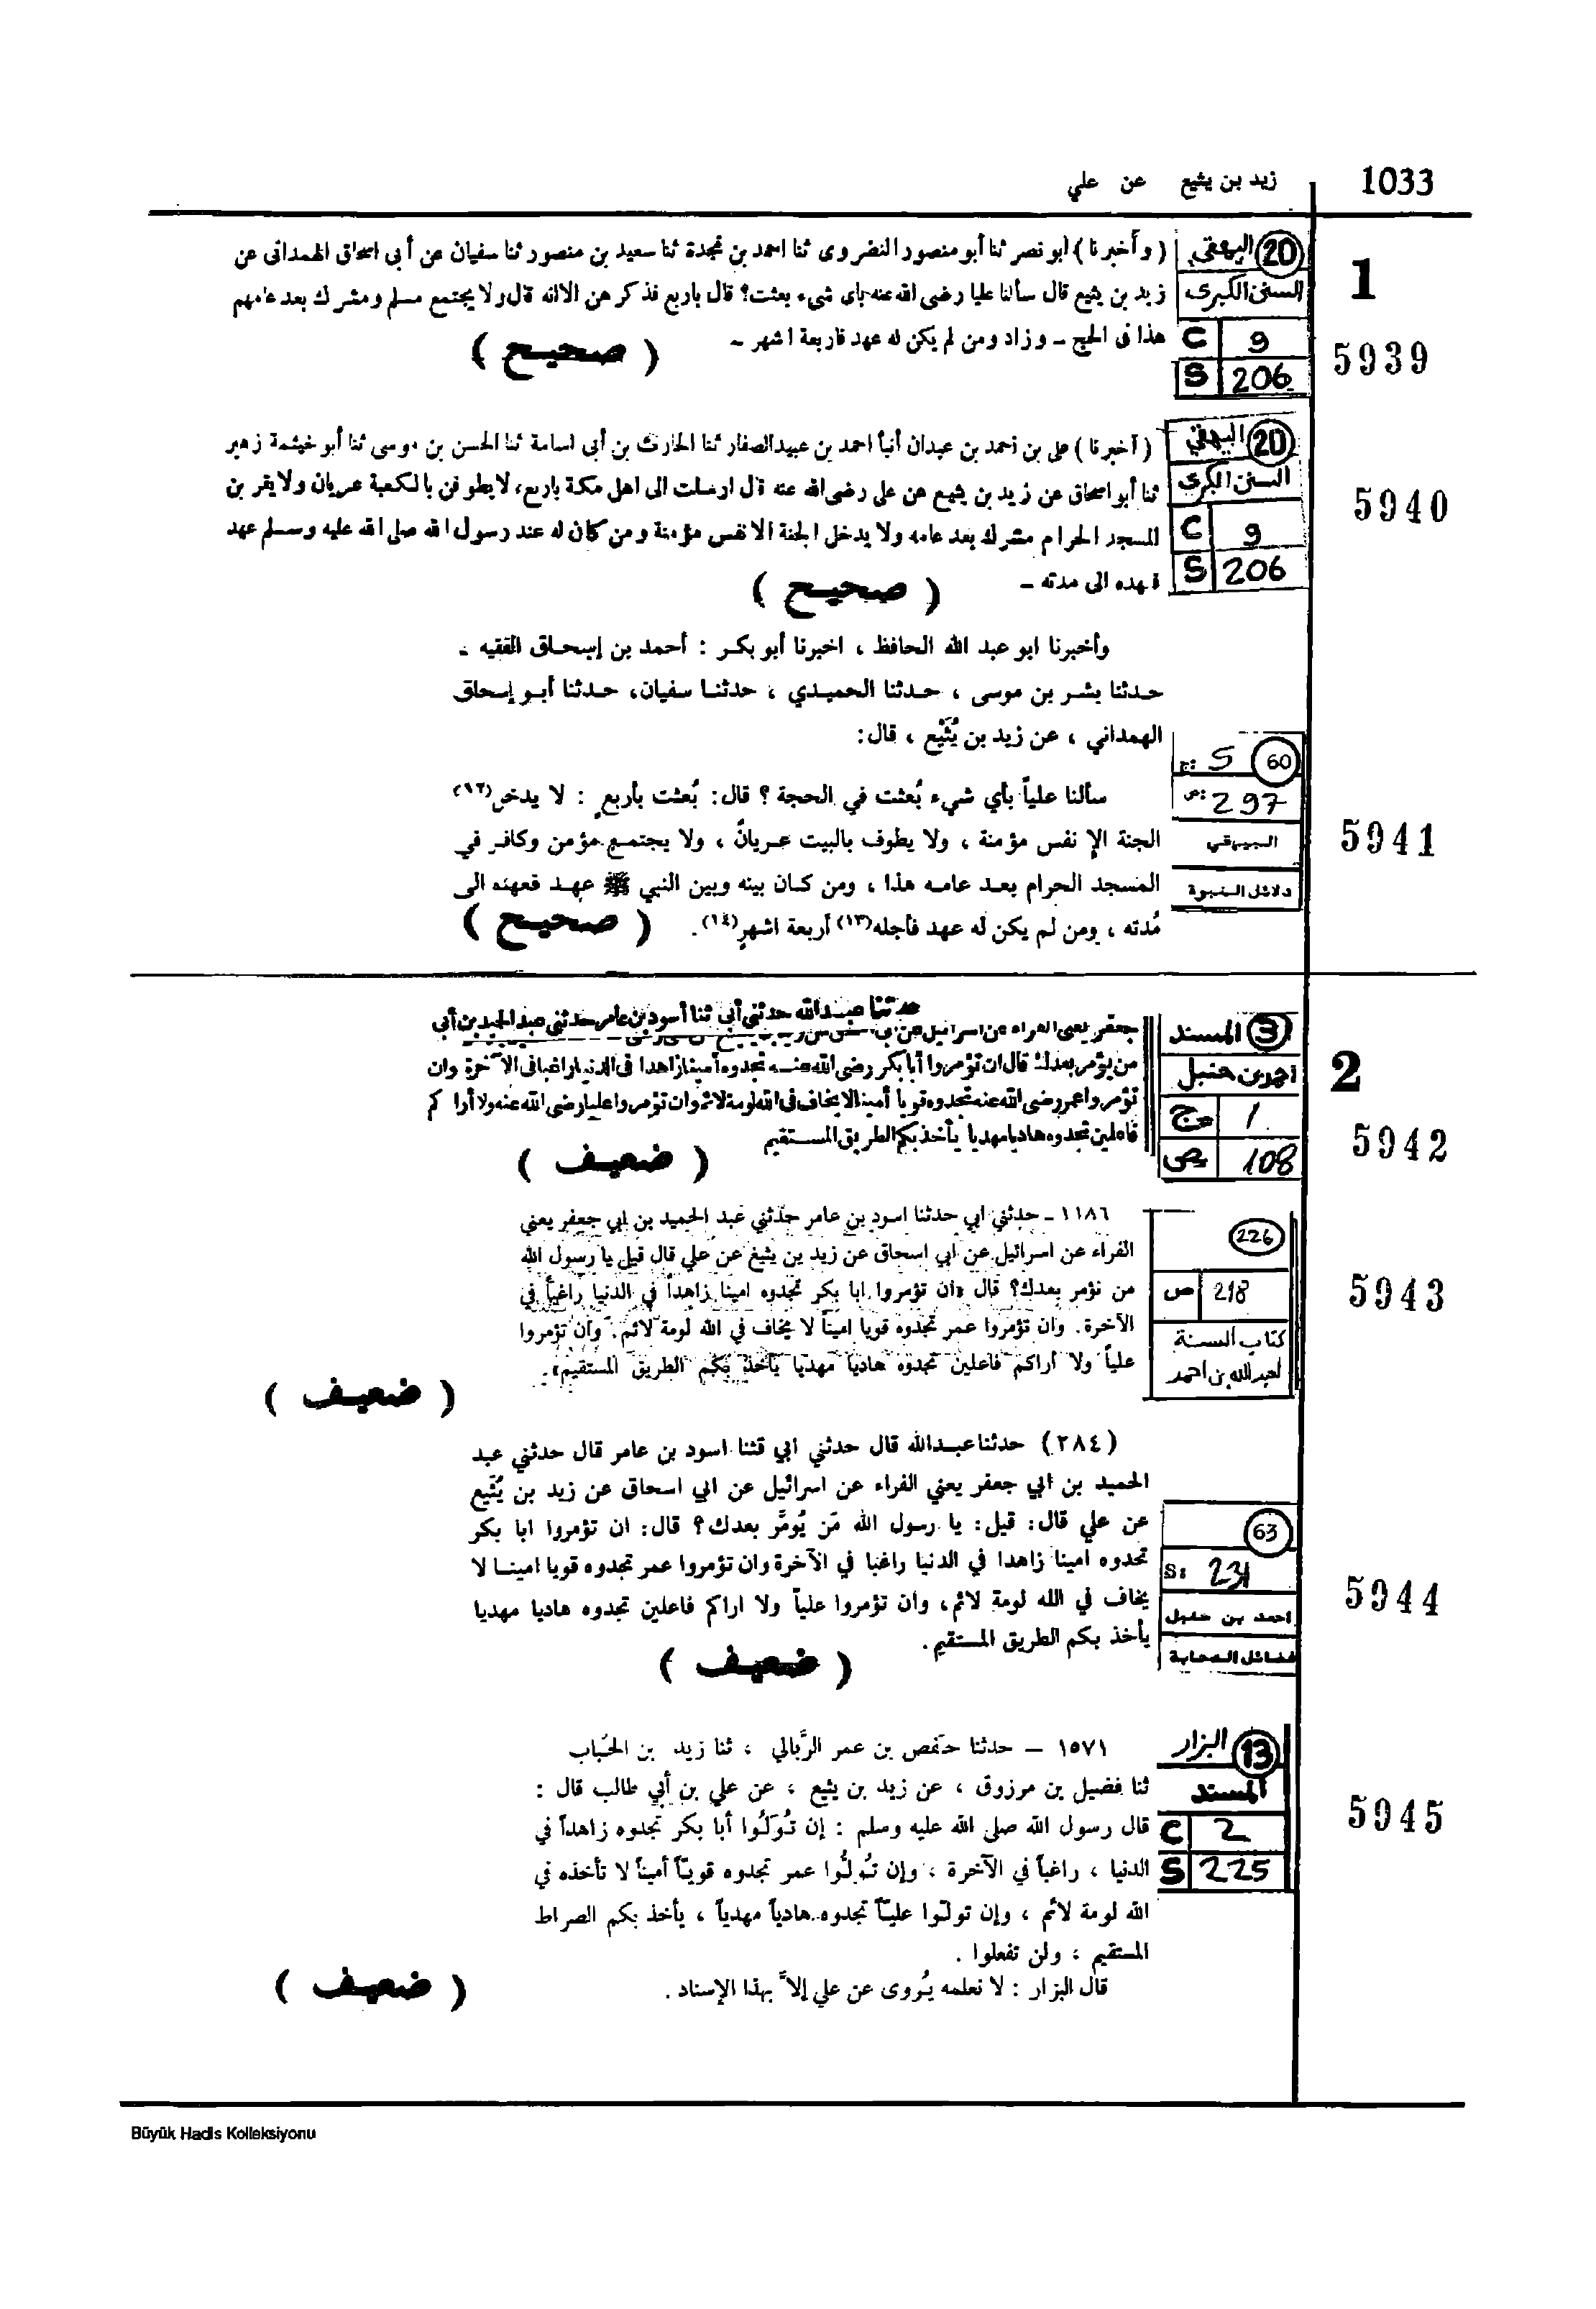 1033
زيد بن يثيع عن علي
1
5939
20 البيهقي
السنن الكبرى
C 9
S 206
( وأخبرنا ) ابو نصر ثنا أبو منصور النضروى ثنا احمد بن نجدة ثنا سعيد بن منصور ثنا سفيان عن أبى اسحاق الهمدانى عن
زيد بن يثيع قال سألنا عليا رضى الله عنه باى شىء بعثت؟ قال باربع فذكر هن الا انه قال ولا يجتمع مسلم ومشرك بعد عامهم
هذا فى الحج ـ وزاد ومن لم يكن له عهد فاربعة اشهر ـ
( صحيح )
5940
20 البيهقي
السنن الكبرى
C 9
S 206
( أخبرنا ) على بن احمد بن عبدان أنبأ احمد بن عبيد الصفار ثنا الحارث بن أبى اسامة ثنا الحسن بن موسى ثنا أبو خيثمة زهير
ثنا أبو اسحاق عن زيد بن يثيع عن على رضى الله عنه قال ارسلت الى اهل مكة باربع، لا يطوفن بالكعبة عريان ولا يقر بن
المسجد الحرام مشرك بعد عامه ولا يدخل الجنة الا نفس مؤمنة ومن كان له عند رسول الله صلى الله عليه وسلم عهد
فعهده الى مدته ـ
( صحيح )
5941
60
ج: 5
ص: 297
البيهقي
دلائل النبوة
وأخبرنا ابو عبد الله الحافظ ، اخبرنا أبو بكر : أحمد بن إسحاق الفقيه ـ
حدثنا بشر بن موسى ، حدثنا الحميدي ، حدثنا سفيان، حدثنا أبو إسحاق
الهمداني ، عن زيد بن يُثَيْع ، قال:
سألنا علياً بأي شيء بُعثت في الحجة ؟ قال: بُعثت بأربعٍ : لا يدخل(١٢)
الجنة الا نفس مؤمنة ، ولا يطوف بالبيت عريانٌ ، ولا يجتمع مؤمن وكافر في
المسجد الحرام بعد عامه هذا ، ومن كان بينه وبين النبي ﷺ عهد فعهده الى
مُدته ، ومن لم يكن له عهد فأجله(١٣) أربعة اشهرٍ(١٤) .
( صحيح )
2
5942
3 المسند
احمد بن حنبل
ج 1
ص 108
حدثنا عبد الله حدثني أبي ثنا أسود بن عامر حدثني عبد الحميد بن أبي
جعفر يعنى الفراء عن اسرائيل عن أبى
من يؤمر بعدك قال ان تؤمروا أبا بكر رضى الله عنه تجدوه أمينا زاهدا فى الدنيا راغبا فى الآخرة وان
تؤمروا عمر رضى الله عنه تجدوه قويا أمينا لا يخاف فى الله لومة لائم وان تؤمروا عليا رضى الله عنه ولا أرا كم
فاعلين تجدوه هاديا مهديا يأخذ بكم الطريق المستقيم
( ضعيف )
5943
226
ص 218
كتاب السنة
لعبد الله بن احمد
١١٨٦ ـ حدثني ابي حدثنا اسود بن عامر حدثني عبد الحميد بن ابي جعفر يعني
الفراء عن اسرائيل عن ابي اسحاق عن زيد بن يثيع عن علي قال قيل يا رسول الله
من نؤمر بعدك؟ قال «ان تؤمروا ابا بكر تجدوه امينا زاهداً في الدنيا راغباً في
الآخرة. وان تؤمروا عمر تجدوه قويا اميناً لا يخاف في الله لومة لائم. وان تؤمروا
علياً ولا أراكم فاعلين تجدوه هادياً مهدياً يأخذ بكم الطريق المستقيم».
( ضعيف )
5944
63
S: 231
احمد بن حنبل
فضائل الصحابة
(٢٨٤) حدثنا عبد الله قال حدثني ابي قثنا اسود بن عامر قال حدثني عبد
الحميد بن ابي جعفر يعني الفراء عن اسرائيل عن ابي اسحاق عن زيد بن يُثَيع
عن علي قال: قيل: يا رسول الله مَن يُومَّر بعدك؟ قال: ان تؤمروا ابا بكر
تجدوه امينا زاهدا في الدنيا راغبا في الآخرة وان تؤمروا عمر تجدوه قويا امينا لا
يخاف في الله لومة لائم، وان تؤمروا علياً ولا اراكم فاعلين تجدوه هاديا مهديا
يأخذ بكم الطريق المستقيم .
( ضعيف )
5945
13 البزار
المسند
C 2
S 225
١٥٧١ – حدثنا حفص بن عمر الرَّبالي ، ثنا زيد بن الحُباب
ثنا فضيل بن مرزوق ، عن زيد بن يثيع ، عن علي بن أبي طالب قال :
قال رسول الله صلى الله عليه وسلم : إن تُوَلُّوا أبا بكر تجدوه زاهداً في
الدنيا ، راغباً في الآخرة ، وإن تُولُّوا عمر تجدوه قويّاً أميناً لا تأخذه في
الله لومة لائم ، وإن تولّوا عليّاً تجدوه هادياً مهدياً ، يأخذ بكم الصراط
المستقيم ، ولن تفعلوا .
قال البزار : لا نعلمه يُروى عن علي إلاَّ بهذا الإسناد .
( ضعيف )
Büyük Hadis Kolleksiyonu